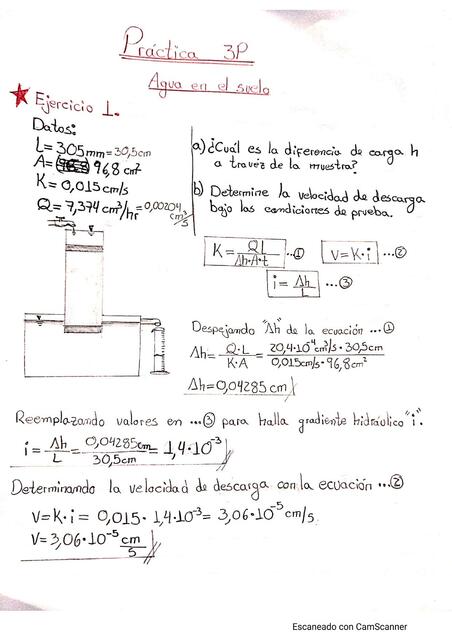 Práctica 3P
Agua en el suelo
Ejercicio 1.
Datos:
L = 305 mm = 30,5cm
A = 96,8 cm²
K = 0,015 cm/s
Q = 7,374 cm³/hr = 0,00204 cm³/s
a) ¿Cuál es la diferencia de carga h
a travéz de la muestra?
b) Determine la velocidad de descarga
bajo las condiciones de prueba.
K = QL / Δh·A·t ...①
V = K·i ...②
i = Δh / L ...③
Despejando "Δh" de la ecuación ...①
Δh = Q·L / K·A = 20,4·10⁻⁴cm³/s · 30,5cm / 0,015cm/s · 96,8cm²
Δh = 0,04285 cm
Reemplazando valores en ...③ para halla gradiente hidráulico "i".
i = Δh / L = 0,04285cm / 30,5cm = 1,4·10⁻³
Determinando la velocidad de descarga con la ecuación ...②
V = K·i = 0,015 · 1,4·10⁻³ = 3,06·10⁻⁵ cm/s
V = 3,06·10⁻⁵ cm/s
Escaneado con CamScanner